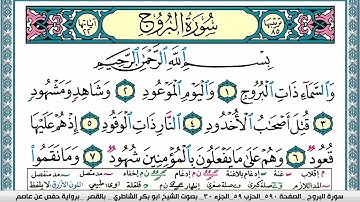 ترتيبها ٨٥ سُورَةُ البُرُوجِ آياتها ٢٢
بِسْمِ اللَّهِ الرَّحْمَٰنِ الرَّحِيمِ
وَالسَّمَاءِ ذَاتِ الْبُرُوجِ ١ وَالْيَوْمِ الْمَوْعُودِ ٢ وَشَاهِدٍ وَمَشْهُودٍ
٣ قُتِلَ أَصْحَابُ الْأُخْدُودِ ٤ النَّارِ ذَاتِ الْوَقُودِ ٥ إِذْ هُمْ عَلَيْهَا
قُعُودٌ ٦ وَهُمْ عَلَىٰ مَا يَفْعَلُونَ بِالْمُؤْمِنِينَ شُهُودٌ ٧ وَمَا نَقَمُوا
سورة البروج الصفحة ٥٩٠ الحزب ٥٩ الجزء ٣٠ بصوت الشيخ أبو بكر الشاطري بالقصر برواية حفص عن عاصم